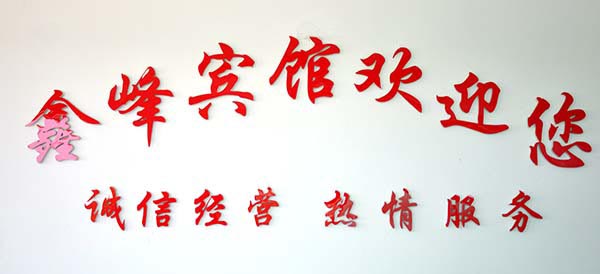 鑫峰宾馆欢迎您
诚信经营 热情服务